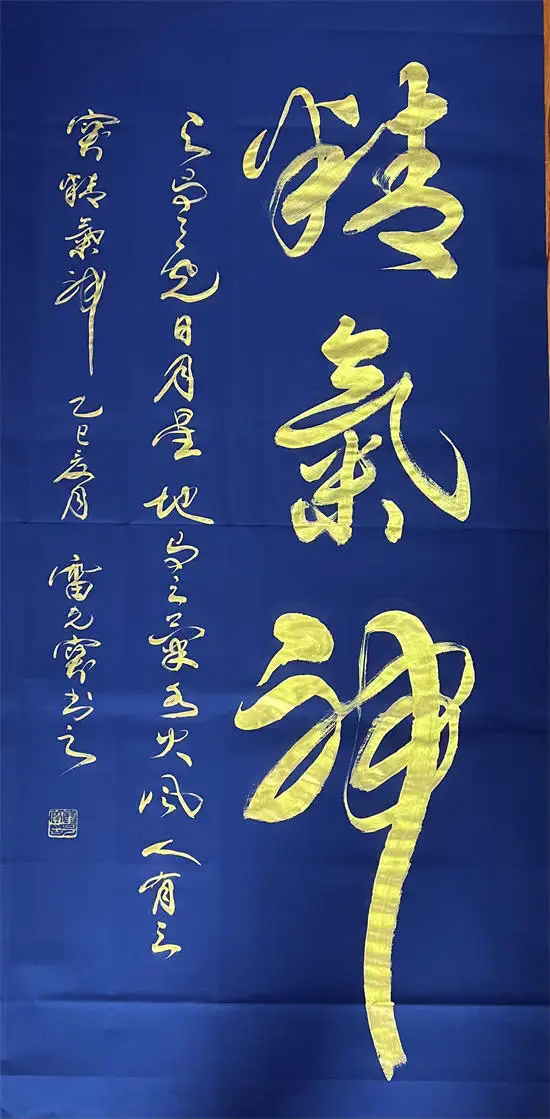 精氣神
天有三光日月星地有三氣水火風人有三
寶精氣神 乙巳夏月 雷元寶书之